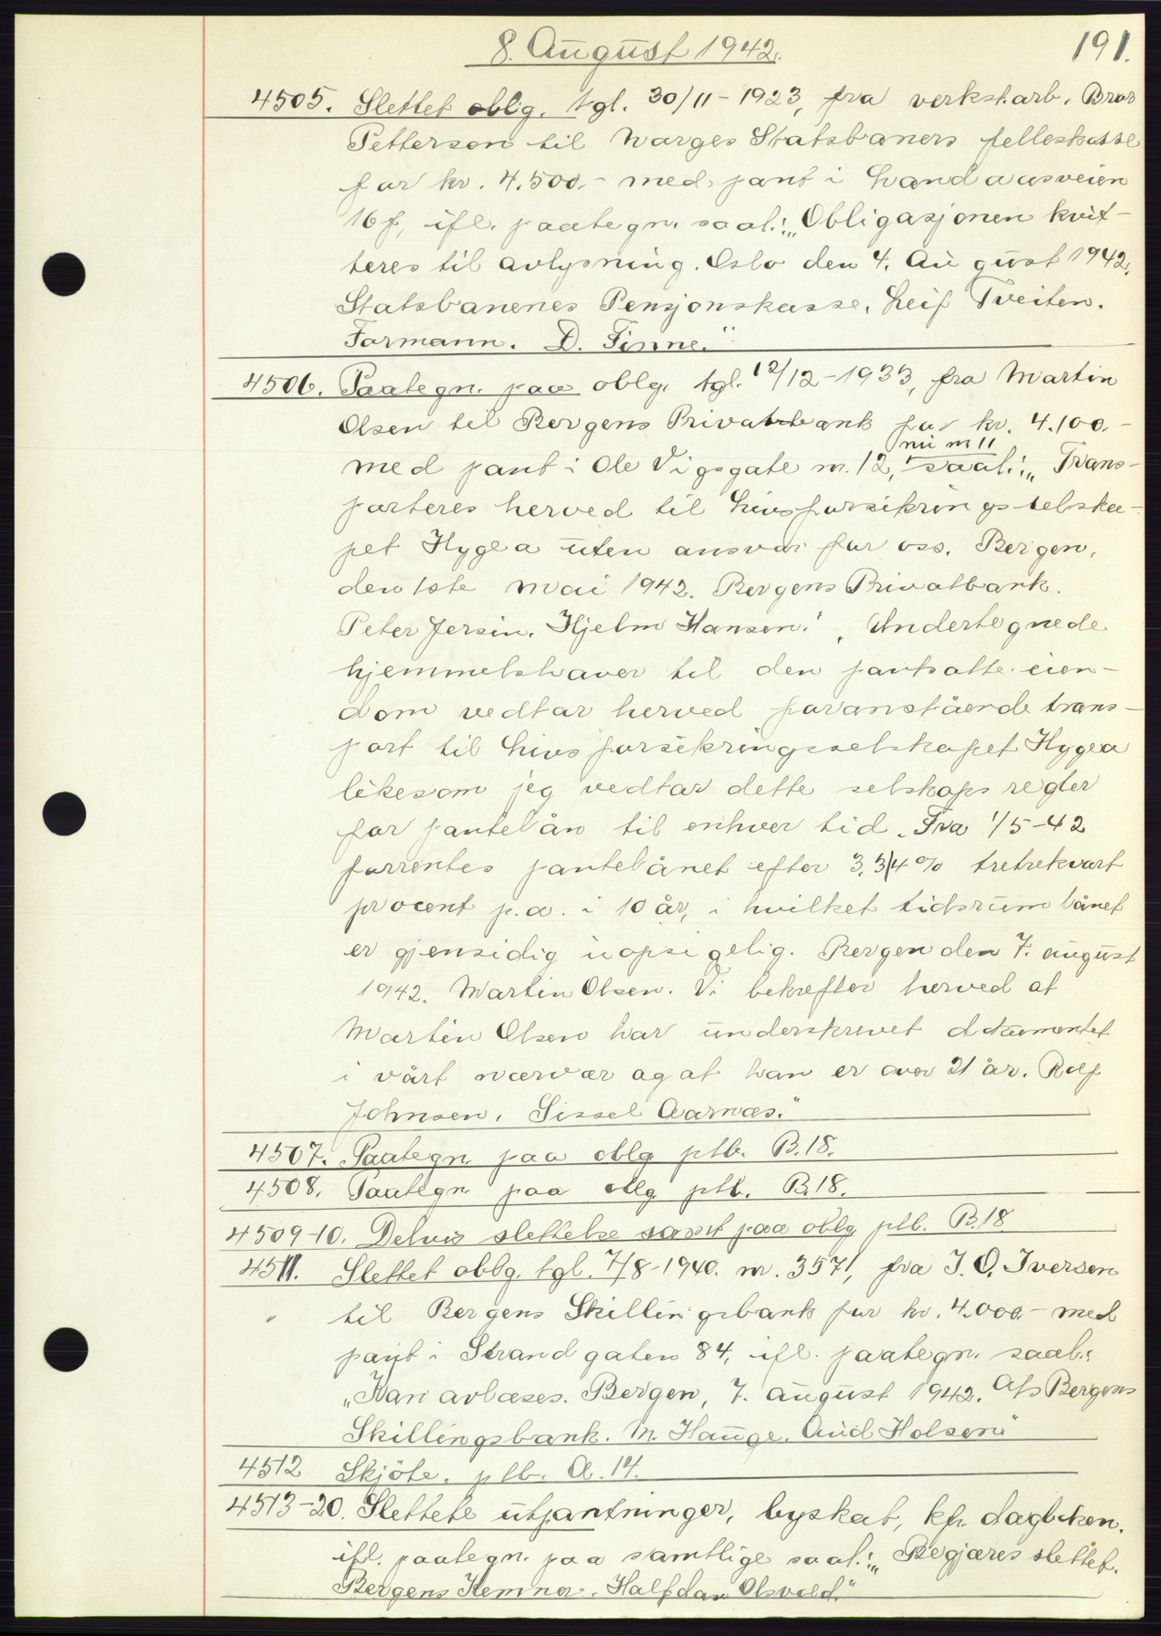 8. August 1942.
191.
4505. Slettet oblig. tgl. 30/11-1923, fra verkst.arb. Bror
Petterson til Norges Statsbaners felleskasse
for kr. 4.500.- med pant i Landaasveien
16 f, ifl. paategn. saal.: „Obligasjonen kvit-
teres til avlysning. Oslo den 4. August 1942.
Statsbanenes Pensjonskasse. Leif Tveiten.
Formann. D. Finne."
4506. Paategn. paa oblg. tgl. 12/12-1933, fra Martin
Olsen til Bergens Privatbank for kr. 4.100.-
nu nr 11
med pant i Ole Vigsgate nr. 12, saal.: „Trans-
porteres herved til Livsforsikringsselska-
pet Hygea uten ansvar for oss. Bergen,
den 1ste mai 1942. Bergens Privatbank.
Peter Jersin. Hjelm Hansen." „Undertegnede
hjemmelshaver til den pantsatte eien-
dom vedtar herved foranstående trans-
port til Livsforsikringsselskapet Hygea
likesom jeg vedtar dette selskaps regler
for pantelån til enhver tid. Fra 1/5-42
forrentes pantelånet efter 3.3/4% tretrekvart
procent p.a. i 10 år, i hvilket tidsrum lånet
er gjensidig uopsigelig. Bergen den 7. august
1942. Martin Olsen. Vi bekrefter herved at
Martin Olsen har underskrevet dokumentet
i vårt nærvær og at han er over 21 år. Rolf
Johnsen. Sissel Aarnæs."
4507. Paategn. paa oblg ptb. B.18.
4508. Paategn paa oblg ptb. B.18.
4509-10. Delvis slettelse samt paa oblg ptb. B.18
4511. Slettet oblg. tgl. 7/8-1940. nr. 3571, fra J. O. Iversen
til Bergens Skillingsbank for kr. 4.000.- med
pant i Strandgaten 84, ifl. paategn. saal.:
„Kan avlæses. Bergen, 7. august 1942. A/s Bergens
Skillingsbank. M. Hauge. Aud Holsen"
4512 Skjöte. ptb. A. 14.
4513-20. Slettete utpantninger, byskat, kfr. dagboken.
ifl. paategn. paa samtlige saal.: „Begjæres slettet.
Bergens Kemner. Halfdan Olsvold."